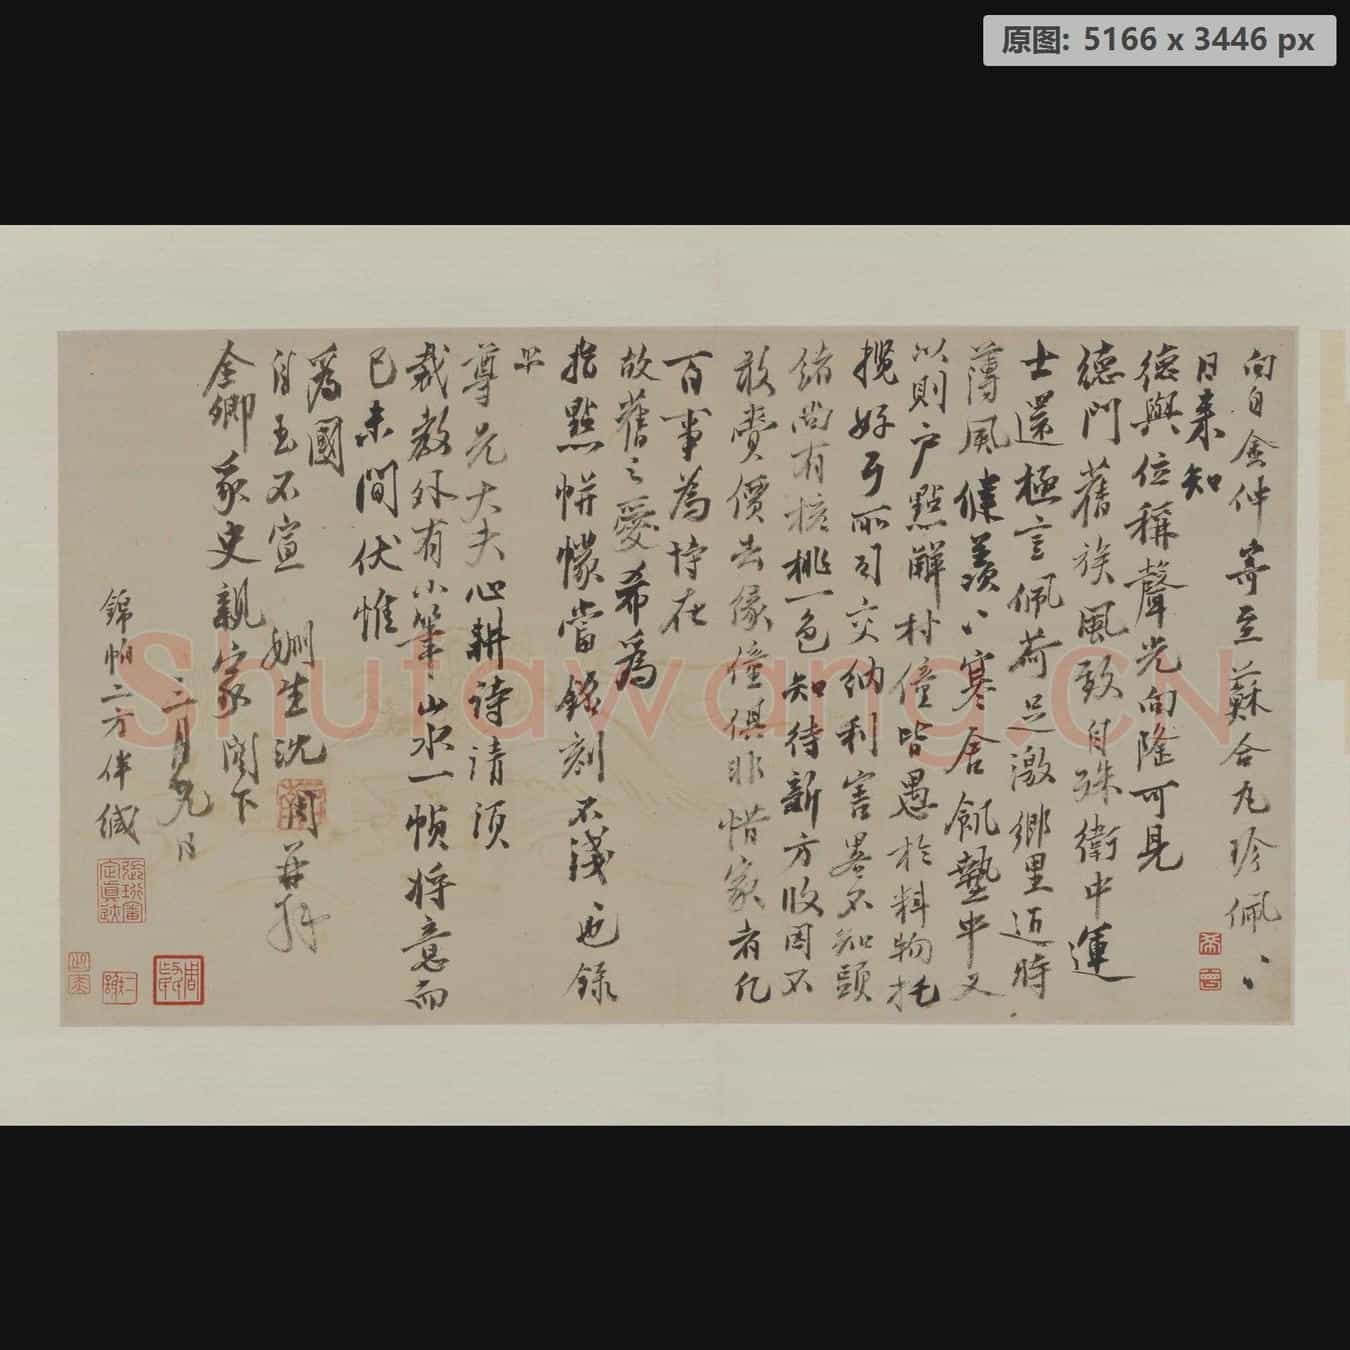 原图: 5166 x 3446 px
向自金仲寄至蘇合丸珍佩〻
日来知
德與位稱聲光向隆可見
德門舊族風致自殊衛中運
士還極言佩荷足激鄉里近時
薄風健羡〻寒舍飢墊中又
以則户點解村僮皆愚於料物扥
攬好弓所司交納利害畧不知頭
緒尚有核桃一色知待新方收因不
敢賣價去緣僮俱非惜家者凡
百事為恃在
故舊之愛希為
指點帡幪當銘刻不淺也録
上
尊兄大夫心耕詩請須
裁教外有小筆山水一幀将意而
已未間伏惟
為國
自玉不宣 姻生沈周再拜
金卿豕史親家閣下
二月九日
錦帕二方伴緘
Shufawang.CN